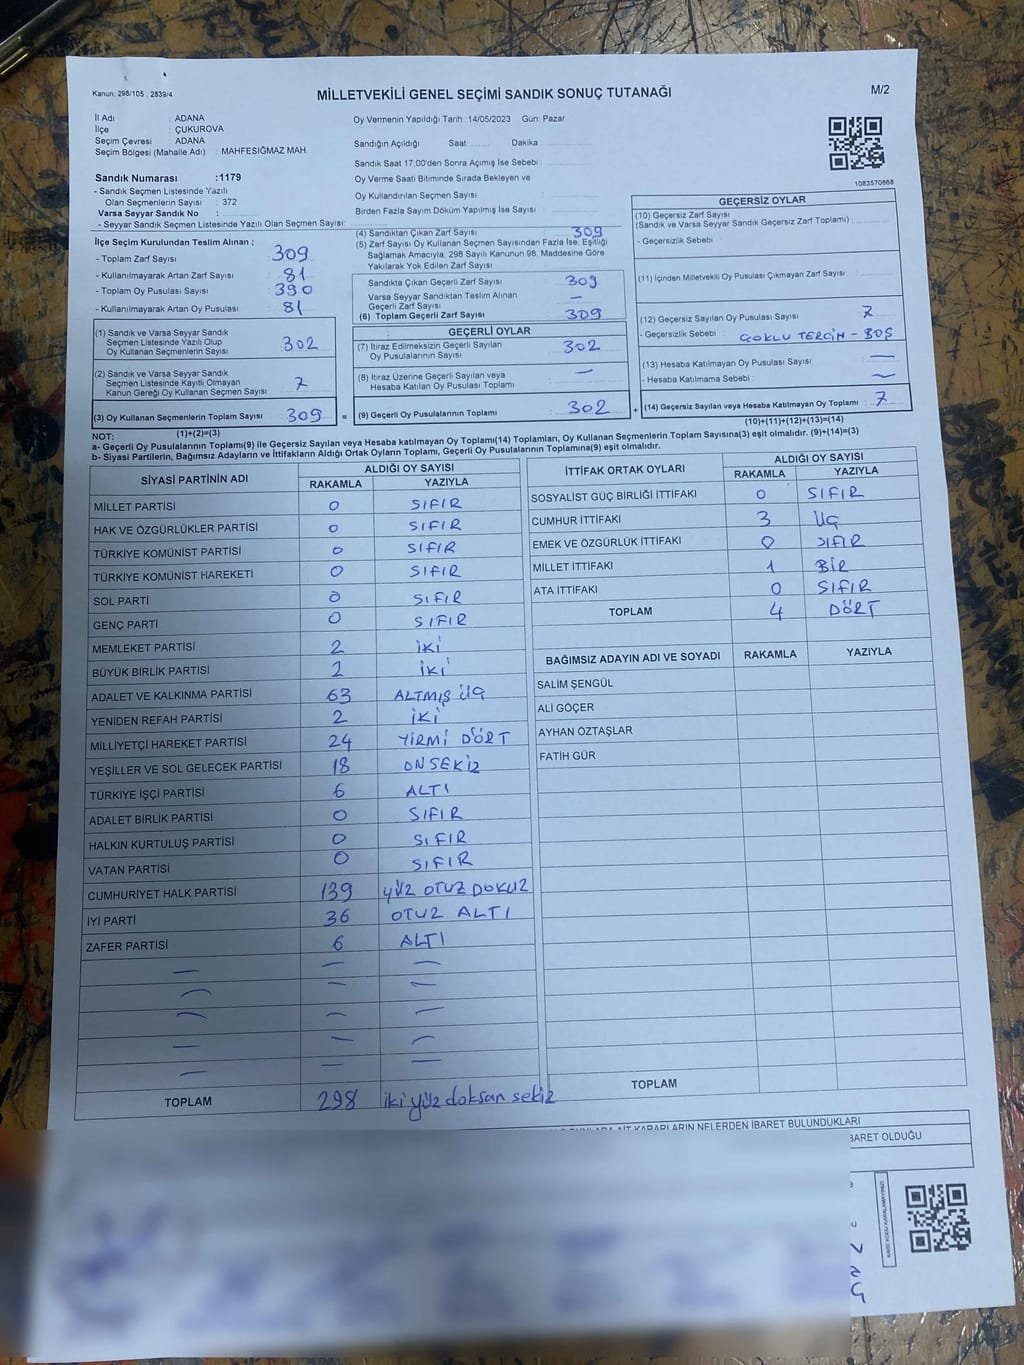 Kanun: 298/105 , 2839/4
MİLLETVEKİLİ GENEL SEÇİMİ SANDIK SONUÇ TUTANAĞI
M/2
İl Adı : ADANA
İlçe : ÇUKUROVA
Seçim Çevresi : ADANA
Seçim Bölgesi (Mahalle Adı) : MAHFESIĞMAZ MAH.
Sandık Numarası :1179
- Sandık Seçmen Listesinde Yazılı
Olan Seçmenlerin Sayısı : 372
Varsa Seyyar Sandık No :
- Seyyar Sandık Seçmen Listesinde Yazılı Olan Seçmen Sayısı:
Oy Vermenin Yapıldığı Tarih :14/05/2023 Gün: Pazar
Sandığın Açıldığı Saat Dakika :
Sandık Saat 17:00'den Sonra Açımış İse Sebebi :
Oy Verme Saati Bitiminde Sırada Bekleyen ve
Oy Kullandırılan Seçmen Sayısı
Birden Fazla Sayım Döküm Yapılmış İse Sayısı :
1083570868
İlçe Seçim Kurulundan Teslim Alınan ;
- Toplam Zarf Sayısı : 309
- Kullanılmayarak Artan Zarf Sayısı : 81
- Toplam Oy Pusulası Sayısı : 390
- Kullanılmayarak Artan Oy Pusulası : 81
(1) Sandık ve Varsa Seyyar Sandık
Seçmen Listesinde Yazılı Olup
Oy Kullanan Seçmenlerin Sayısı 302
(2) Sandık ve Varsa Seyyar Sandık
Seçmen Listesinde Kayıtlı Olmayan
Kanun Gereği Oy Kullanan Seçmen Sayısı 7
(3) Oy Kullanan Seçmenlerin Toplam Sayısı 309 =
(1)+(2)=(3)
(4) Sandıktan Çıkan Zarf Sayısı 309
(5) Zarf Sayısı Oy Kullanan Seçmen Sayısından Fazla İse, Eşitliği
Sağlamak Amacıyla; 298 Sayılı Kanunun 98. Maddesine Göre
Yakılarak Yok Edilen Zarf Sayısı
Sandıkta Çıkan Geçerli Zarf Sayısı 309
Varsa Seyyar Sandıktan Teslim Alınan
Geçerli Zarf Sayısı —
(6) Toplam Geçerli Zarf Sayısı 309
GEÇERLİ OYLAR
(7) İtiraz Edilmeksizin Geçerli Sayılan
Oy Pusulalarının Sayısı 302
(8) İtiraz Üzerine Geçerli Sayılan veya
Hesaba Katılan Oy Pusulası Toplamı —
(9) Geçerli Oy Pusulalarının Toplamı 302 +
GEÇERSİZ OYLAR
(10) Geçersiz Zarf Sayısı
(Sandık ve Varsa Seyyar Sandık Geçersiz Zarf Toplamı) :
- Geçersizlik Sebebi :
(11) İçinden Milletvekili Oy Pusulası Çıkmayan Zarf Sayısı :
(12) Geçersiz Sayılan Oy Pusulası Sayısı : 7
- Geçersizlik Sebebi : ÇOKLU TERCİH - BOŞ
(13) Hesaba Katılmayan Oy Pusulası Sayısı : —
- Hesaba Katılmama Sebebi : —
(14) Geçersiz Sayılan veya Hesaba Katılmayan Oy Toplamı : 7
(10)+(11)+(12)+(13)=(14)
NOT:
a- Geçerli Oy Pusulalarının Toplamı(9) ile Geçersiz Sayılan veya Hesaba katılmayan Oy Toplamı(14) Toplamları, Oy Kullanan Seçmenlerin Toplam Sayısına(3) eşit olmalıdır. (9)+(14)=(3)
b- Siyasi Partilerin, Bağımsız Adayların ve İttifakların Aldığı Ortak Oyların Toplamı, Geçerli Oy Pusulalarının Toplamına(9) eşit olmalıdır.
SİYASİ PARTİNİN ADI ALDIĞI OY SAYISI
RAKAMLA YAZIYLA
MİLLET PARTİSİ 0 SIFIR
HAK VE ÖZGÜRLÜKLER PARTİSİ 0 SIFIR
TÜRKİYE KOMÜNİST PARTİSİ 0 SIFIR
TÜRKİYE KOMÜNİST HAREKETİ 0 SIFIR
SOL PARTİ 0 SIFIR
GENÇ PARTİ 0 SIFIR
MEMLEKET PARTİSİ 2 İKİ
BÜYÜK BİRLİK PARTİSİ 2 İKİ
ADALET VE KALKINMA PARTİSİ 63 ALTMIŞ ÜÇ
YENİDEN REFAH PARTİSİ 2 İKİ
MİLLİYETÇİ HAREKET PARTİSİ 24 YİRMİ DÖRT
YEŞİLLER VE SOL GELECEK PARTİSİ 18 ONSEKİZ
TÜRKİYE İŞÇİ PARTİSİ 6 ALTI
ADALET BİRLİK PARTİSİ 0 SIFIR
HALKIN KURTULUŞ PARTİSİ 0 SIFIR
VATAN PARTİSİ 0 SIFIR
CUMHURİYET HALK PARTİSİ 139 YÜZ OTUZ DOKUZ
İYİ PARTİ 36 OTUZ ALTI
ZAFER PARTİSİ 6 ALTI
— — —
— — —
— — —
— — —
— — —
TOPLAM 298 iki yüz doksan sekiz
İTTİFAK ORTAK OYLARI ALDIĞI OY SAYISI
RAKAMLA YAZIYLA
SOSYALİST GÜÇ BİRLİĞİ İTTİFAKI 0 SIFIR
CUMHUR İTTİFAKI 3 ÜÇ
EMEK VE ÖZGÜRLÜK İTTİFAKI 0 SIFIR
MİLLET İTTİFAKI 1 BİR
ATA İTTİFAKI 0 SIFIR
TOPLAM 4 DÖRT
BAĞIMSIZ ADAYIN ADI VE SOYADI RAKAMLA YAZIYLA
SALİM ŞENGÜL
ALİ GÖÇER
AYHAN ÖZTAŞLAR
FATİH GÜR
TOPLAM
KARARLARIN NELERDEN İBARET BULUNDUKLARI
OLDUĞU